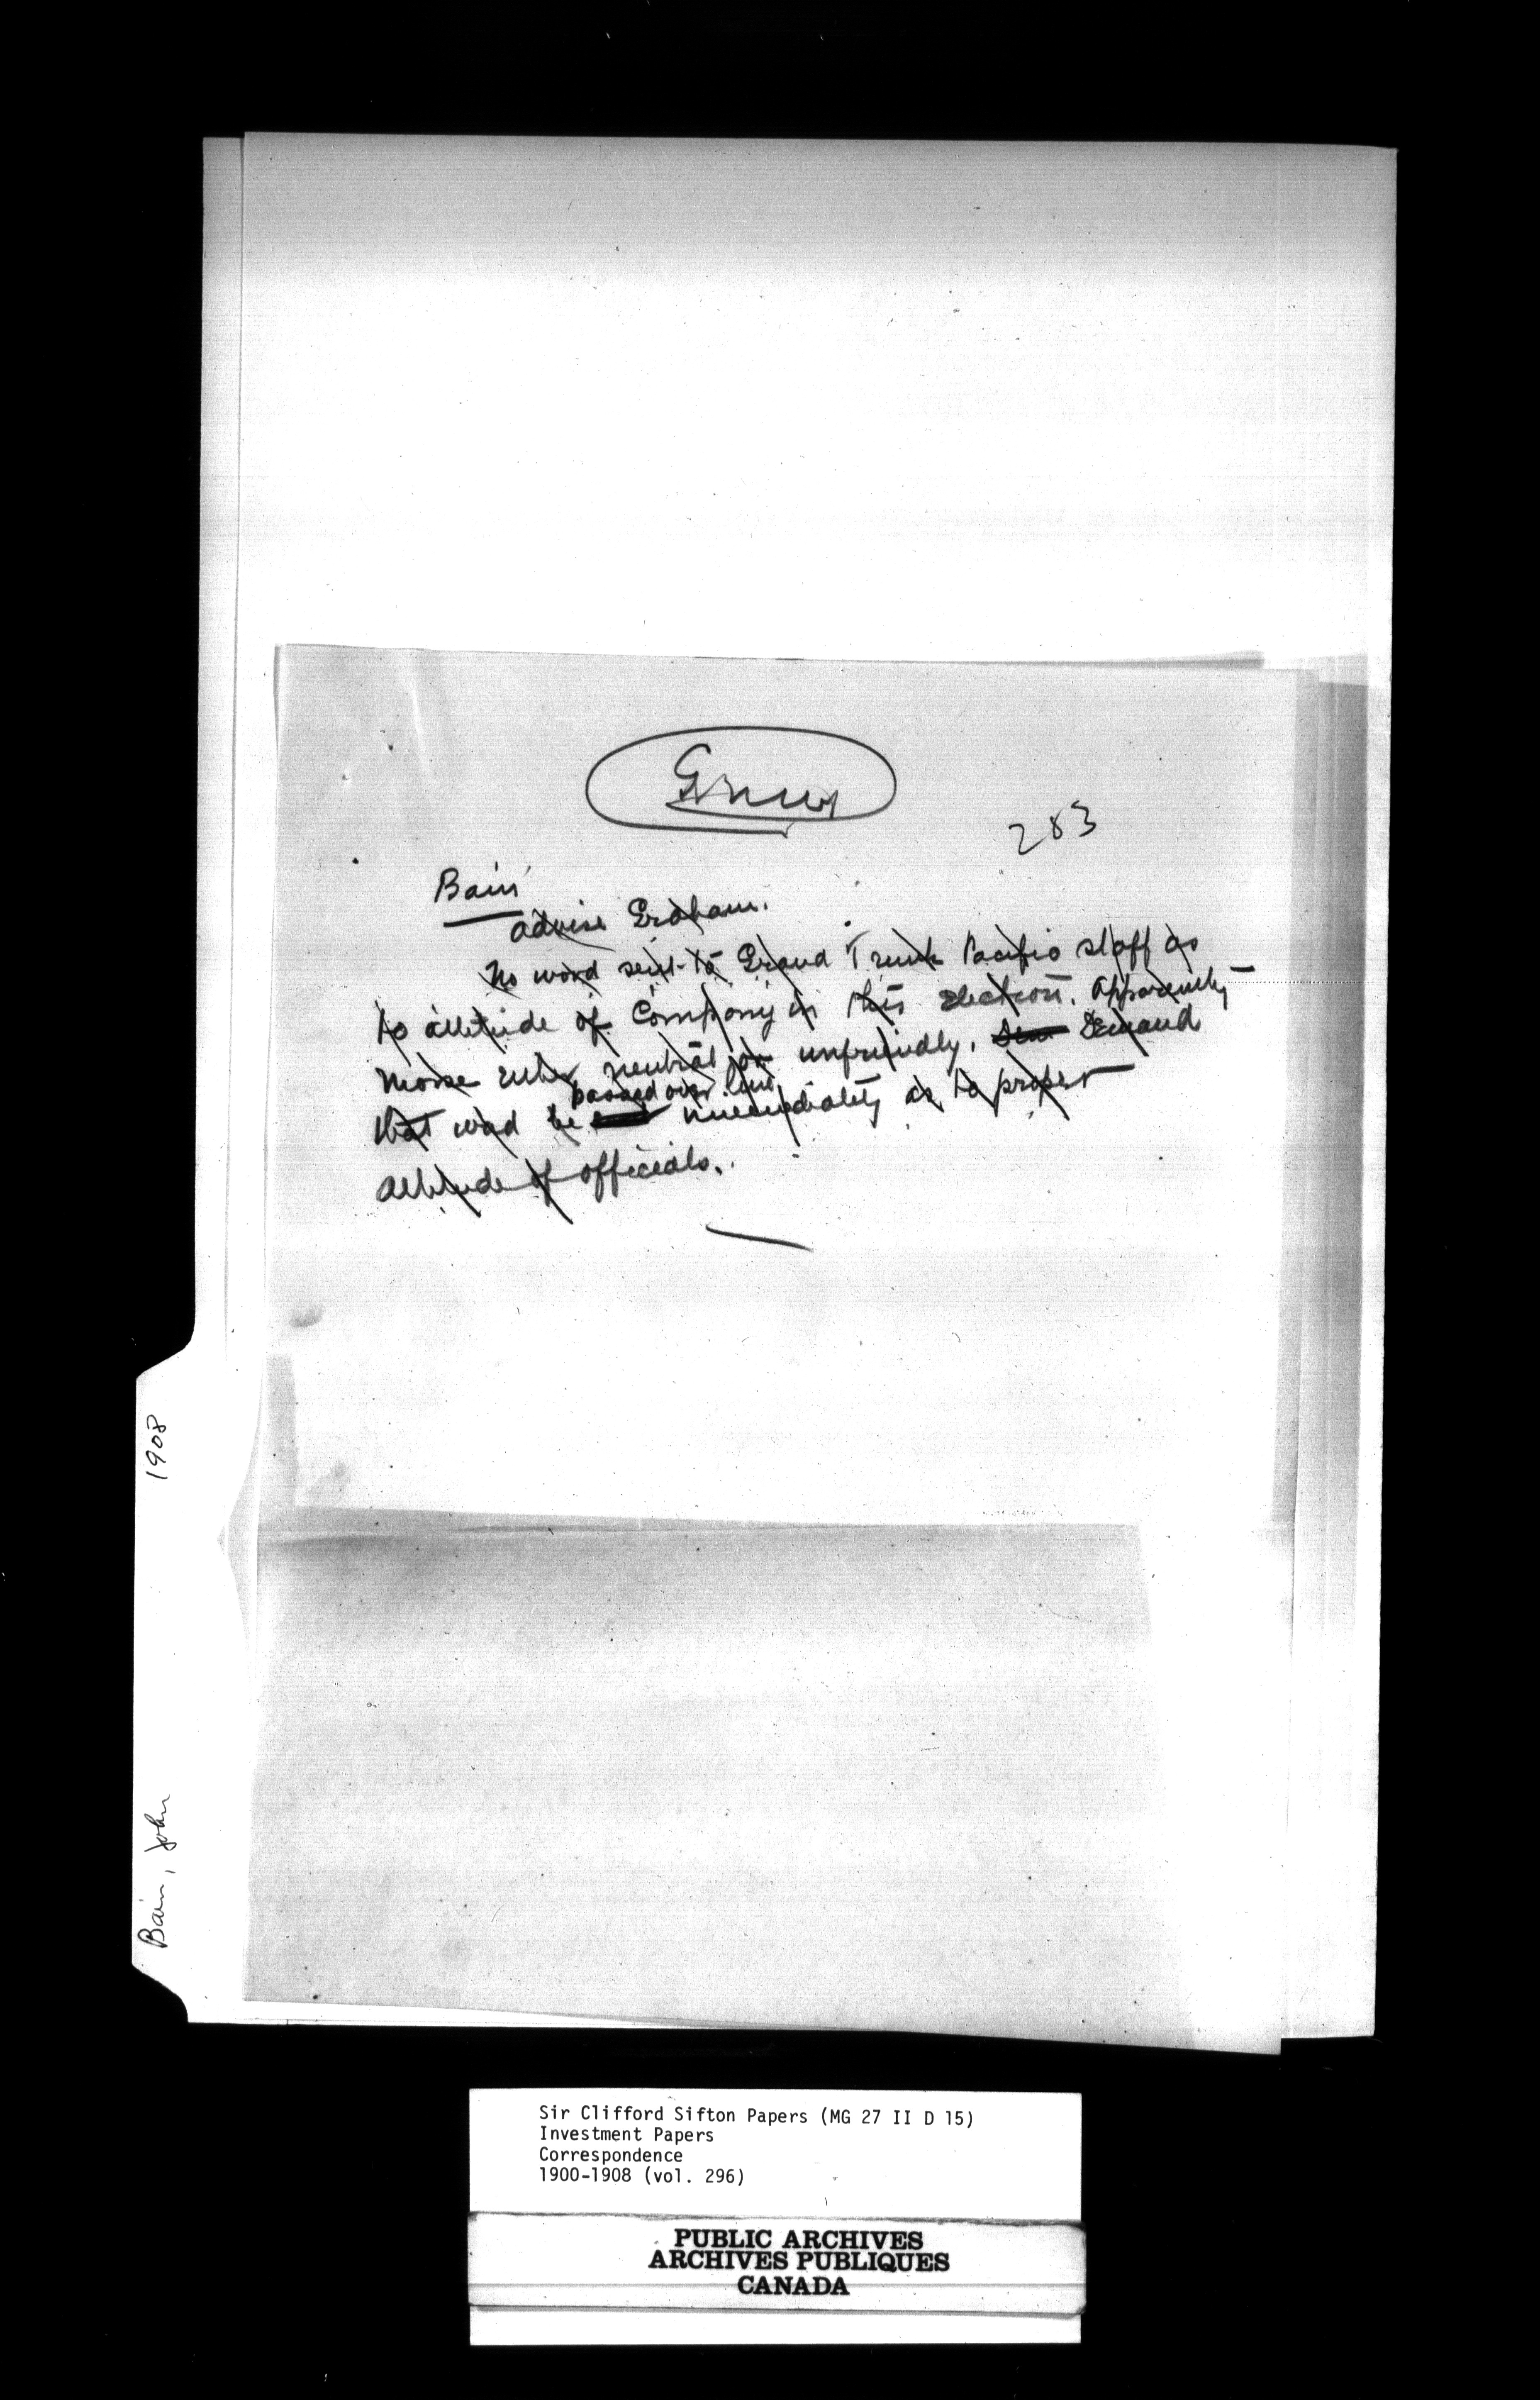 283
Bain
advise Graham.
No word sent to Grand Trunk Pacific staff as
to attitude of Company in this election. Apparently
Morse either neutral or unfriendly. Demand
passed over line
that word be immediately as to proper
attitude of officials.
1908
Bain, John
Sir Clifford Sifton Papers (MG 27 II D 15)
Investment Papers
Correspondence
1900-1908 (vol. 296)
PUBLIC ARCHIVES
ARCHIVES PUBLIQUES
CANADA